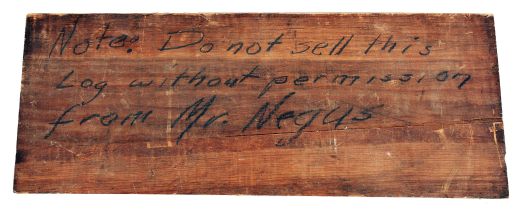 Note: Do not sell this
Log without permission
from Mr. Negus